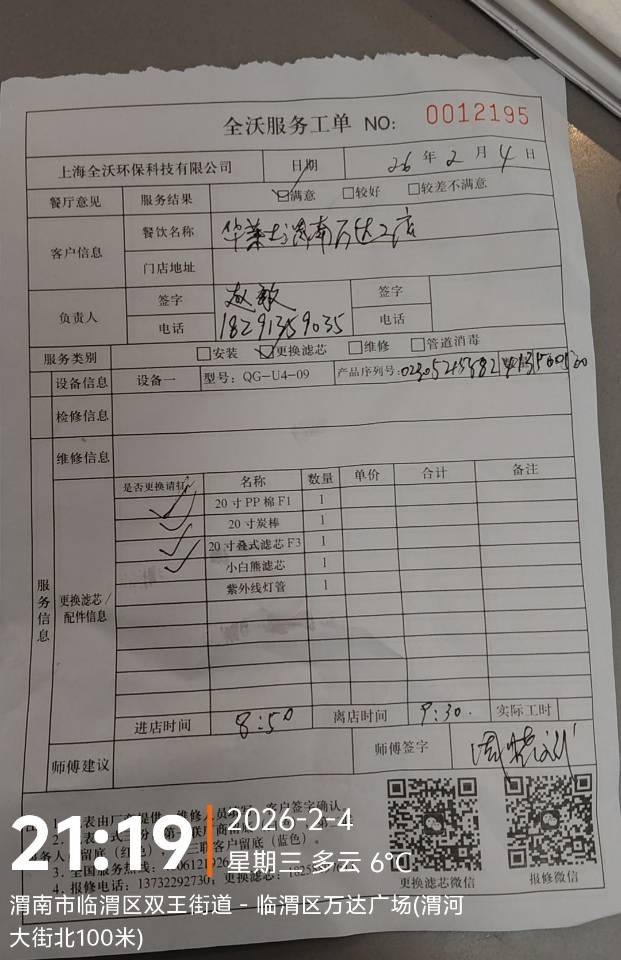 全沃服务工单 NO: 0012195
上海全沃环保科技有限公司 日期 26年2月4日
餐厅意见 服务结果 ☑满意 □较好 □较差不满意
客户信息 餐饮名称 华莱士渭南万达二店
门店地址
负责人 签字 赵敏 签字
电话 18291359035 电话
服务类别 □安装 ☑更换滤芯 □维修 □管道消毒
设备信息 设备一 型号: QG-U4-09 产品序列号:
检修信息
维修信息
服务信息
更换滤芯/配件信息
是否更换请打 名称 数量 单价 合计 备注
✓ 20寸PP棉F1 1
✓ 20寸炭棒 1
✓ 20寸叠式滤芯F3 1
✓ 小白熊滤芯 1
紫外线灯管 1
进店时间 8:50 离店时间 9:30. 实际工时
师傅建议 师傅签字
客户签字确认。
客户留底（蓝色）。
3. 全国服务热线:
4. 报修电话: 13732292730, 更换滤芯:
更换滤芯微信 报修微信
21:19
2026-2-4
星期三 多云 6℃
渭南市临渭区双王街道 - 临渭区万达广场(渭河
大街北100米)